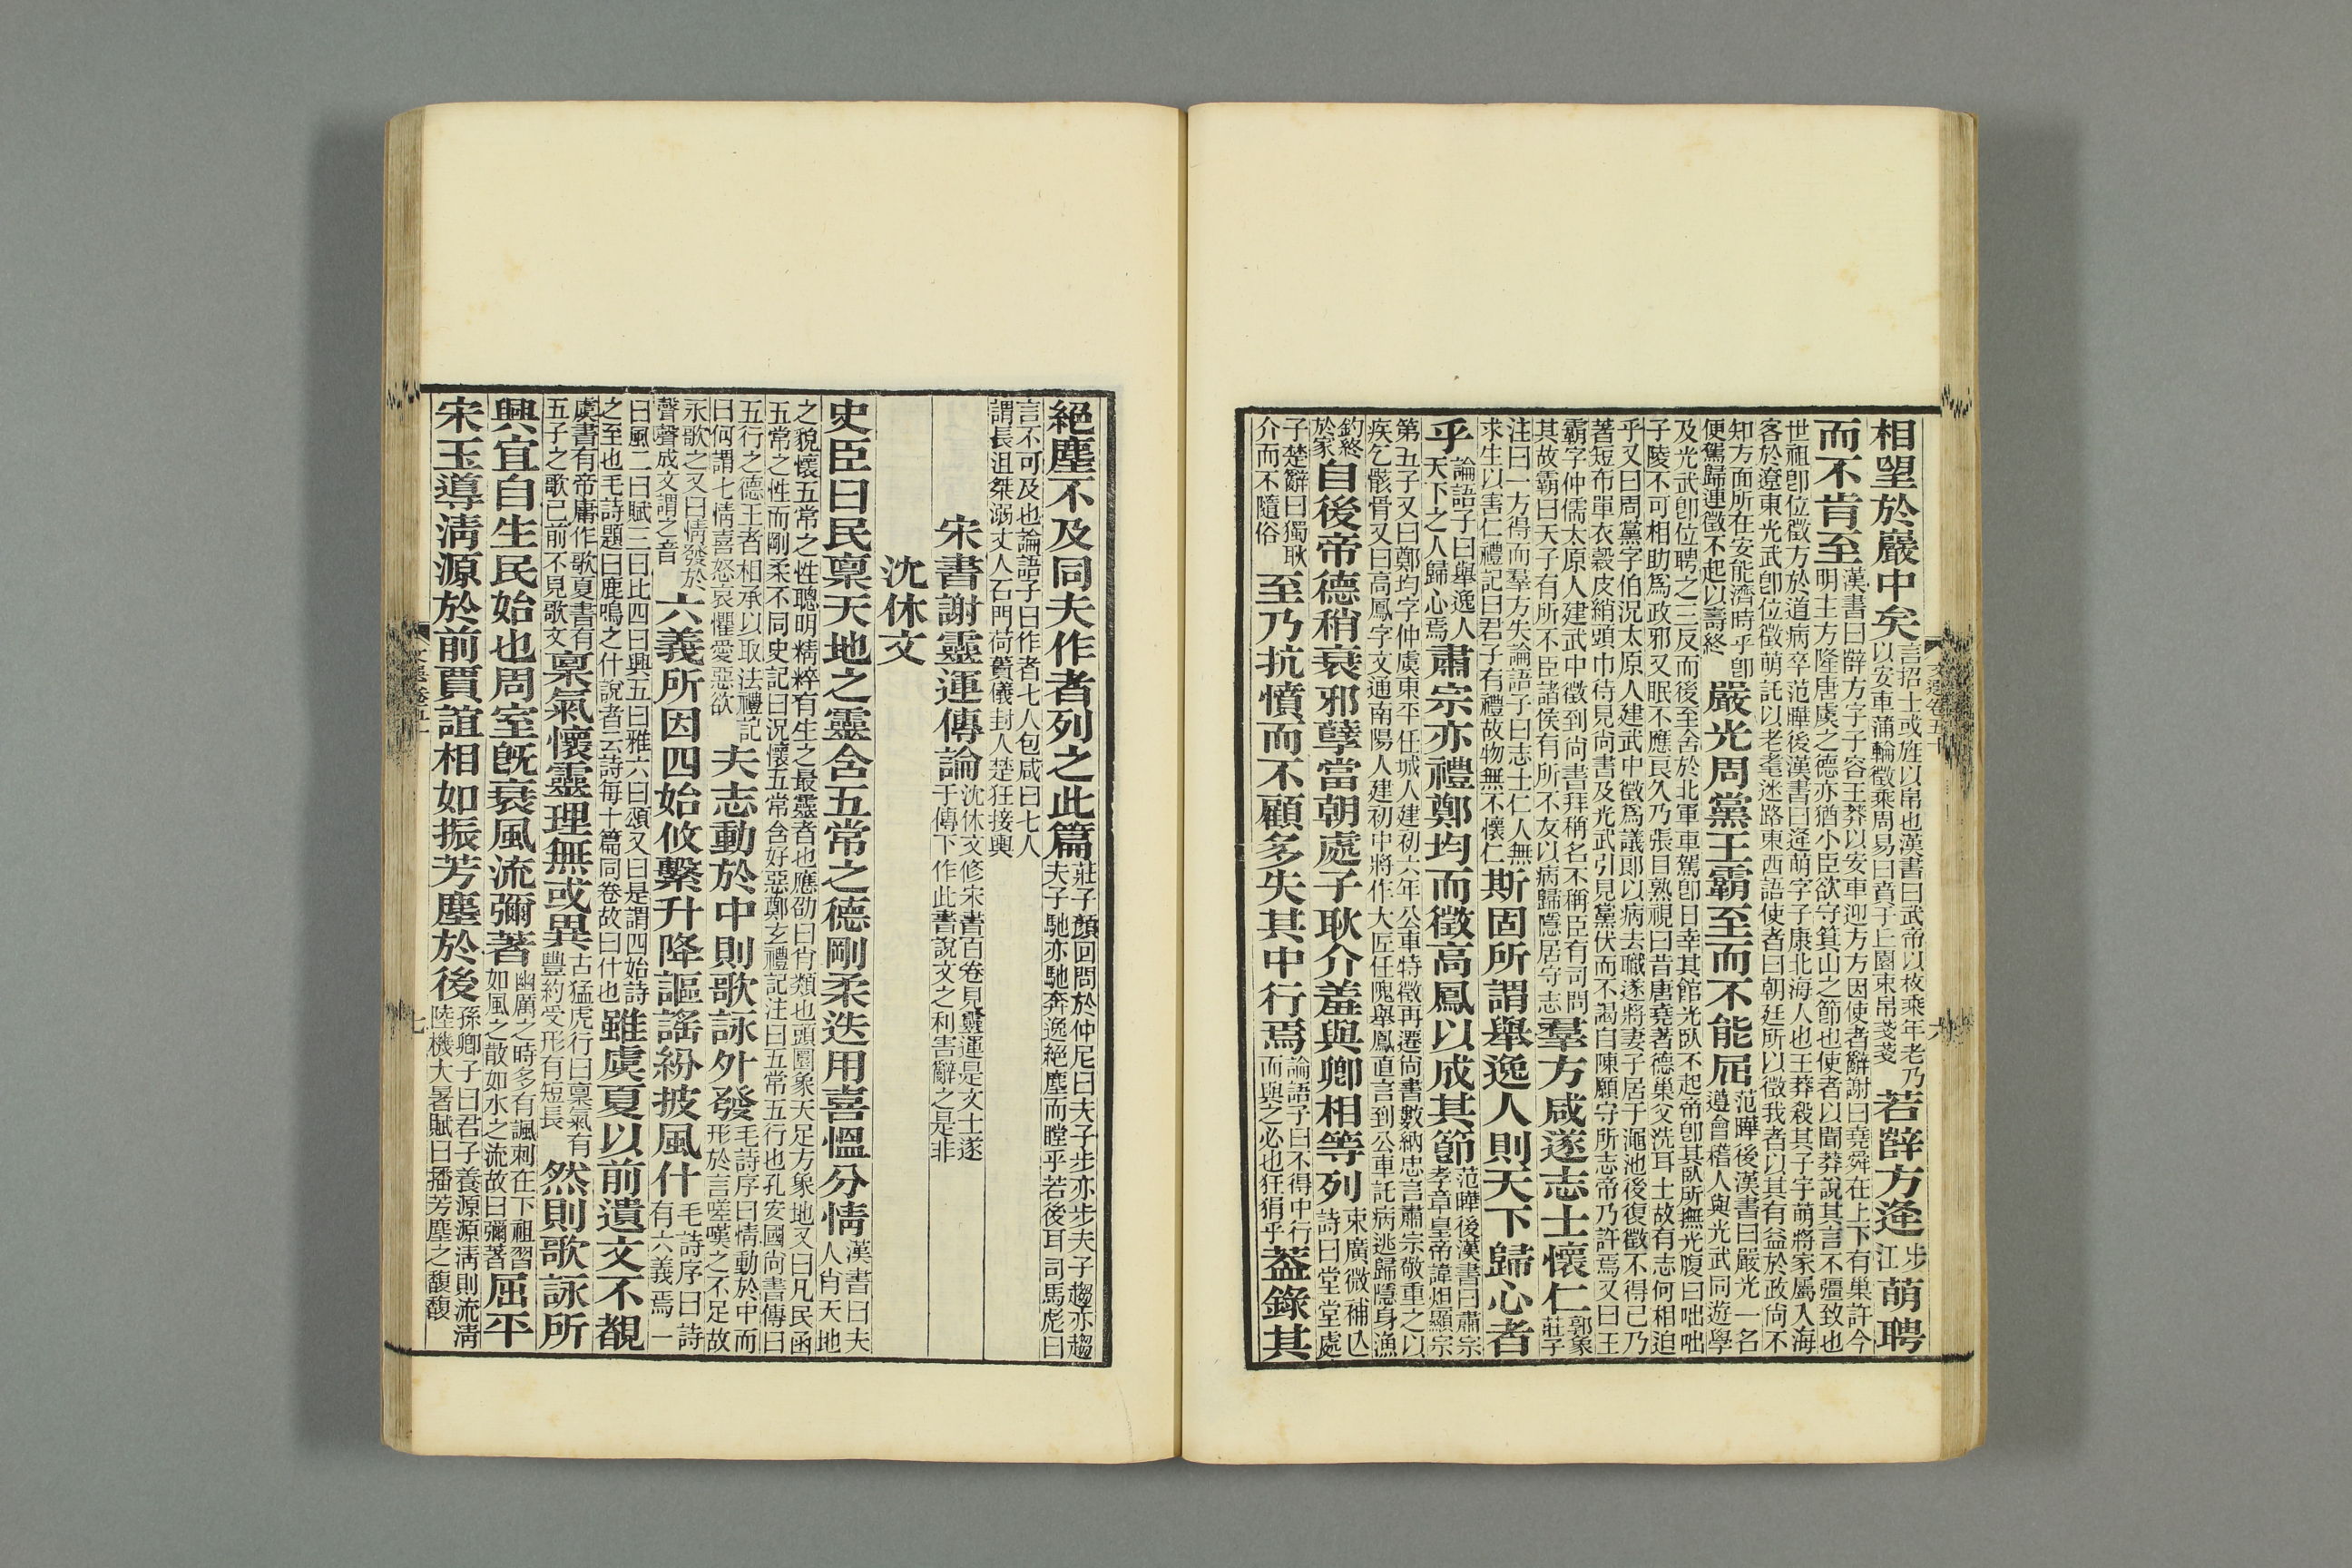 文選卷五十
六
相望於巖中矣言招士或旌以帛也漢書曰武帝以枚乘年老乃以安車蒲輪徵乘周易曰賁于丘園束帛戔戔若薛方逄步江萌聘
而不肯至漢書曰薛方字子容王莽以安車迎方方因使者辭謝曰堯舜在上下有巢許今明主方隆唐虞之德亦猶小臣欲守箕山之節也使者以聞莽說其言不彊致也
世祖卽位徵方於道病卒范曄後漢書曰逄萌字子康北海人也王莽殺其子宇萌將家屬入海客於遼東光武卽位徵萌託以老耄迷路東西語使者曰朝廷所以徵我者以其有益於政尙不
知方面所在安能濟時乎卽便駕歸連徵不起以壽終嚴光周黨王霸至而不能屈范曄後漢書曰嚴光一名遵會稽人與光武同遊學
及光武卽位聘之三反而後至舍於北軍車駕卽日幸其館光臥不起帝卽其臥所撫光腹曰咄咄子陵不可相助爲政邪又眠不應良久乃張目熟視曰昔唐堯著德巢父洗耳士故有志何相迫
乎又曰周黨字伯況太原人建武中徵爲議郎以病去職遂將妻子居于黽池後復徵不得已乃著短布單衣穀皮綃頭巾待見尙書及光武引見黨伏而不謁自陳願守所志帝乃許焉又曰王
霸字仲儒太原人建武中徵到尙書拜稱名不稱臣有司問其故霸曰天子有所不臣諸侯有所不友以病歸隱居守志羣方咸遂志士懷仁郭象莊子
注曰一方得而羣方失論語子曰志士仁人無求生以害仁禮記曰君子有禮故物無不懷仁斯固所謂舉逸人則天下歸心者
乎論語子曰舉逸人天下之人歸心焉肅宗亦禮鄭均而徵高鳳以成其節范曄後漢書曰肅宗孝章皇帝諱炟顯宗
第五子又曰鄭均字仲虞東平任城人建初六年公車特徵再遷尙書數納忠言肅宗敬重之以疾乞骸骨又曰高鳳字文通南陽人建初中將作大匠任隗舉鳳直言到公車託病逃歸隱身漁
釣終於家自後帝德稍衰邪孽當朝處子耿介羞與卿相等列束廣微補亾詩曰堂堂處
子楚辭曰獨耿介而不隨俗至乃抗憤而不顧多失其中行焉論語子曰不得中行而與之必也狂狷乎蓋錄其
絕塵不及同夫作者列之此篇莊子顏回問於仲尼曰夫子步亦步夫子趨亦趨夫子馳亦馳奔逸絕塵而瞠乎若後耳司馬彪曰
言不可及也論語子曰作者七人包咸曰七人謂長沮桀溺丈人石門荷蕢儀封人楚狂接輿
宋書謝靈運傳論沈休文修宋書百卷見靈運是文士遂于傳下作此書說文之利害辭之是非
沈休文
史臣曰民稟天地之靈含五常之德剛柔迭用喜慍分情漢書曰夫人肖天地
之貌懷五常之性聰明精粹有生之最靈者也應劭曰肖類也頭圜象天足方象地又曰凡民函五常之性而剛柔不同史記曰況懷五常含好惡鄭玄禮記注曰五常五行也孔安國尙書傳曰
五行之德王者相承以取法禮記曰何謂七情喜怒哀懼愛惡欲夫志動於中則歌詠外發毛詩序曰情動於中而形於言嗟嘆之不足故
永歌之又曰情發於聲聲成文謂之音六義所因四始攸繫升降謳謠紛披風什毛詩序曰詩有六義焉一
曰風二曰賦三曰比四曰興五曰雅六曰頌又曰是謂四始詩之至也毛詩題曰鹿鳴之什說者云詩每十篇同卷故曰什也雖虞夏以前遺文不覩
虞書有帝庸作歌夏書有五子之歌已前不見歌文稟氣懷靈理無或異古猛虎行曰稟氣有豐約受形有短長然則歌詠所
興宜自生民始也周室旣衰風流彌著幽厲之時多有諷刺在下祖習如風之散如水之流故曰彌著屈平
宋玉導淸源於前賈誼相如振芳塵於後孫卿子曰君子養源源淸則流淸陸機大暑賦曰播芳塵之馥馥
七